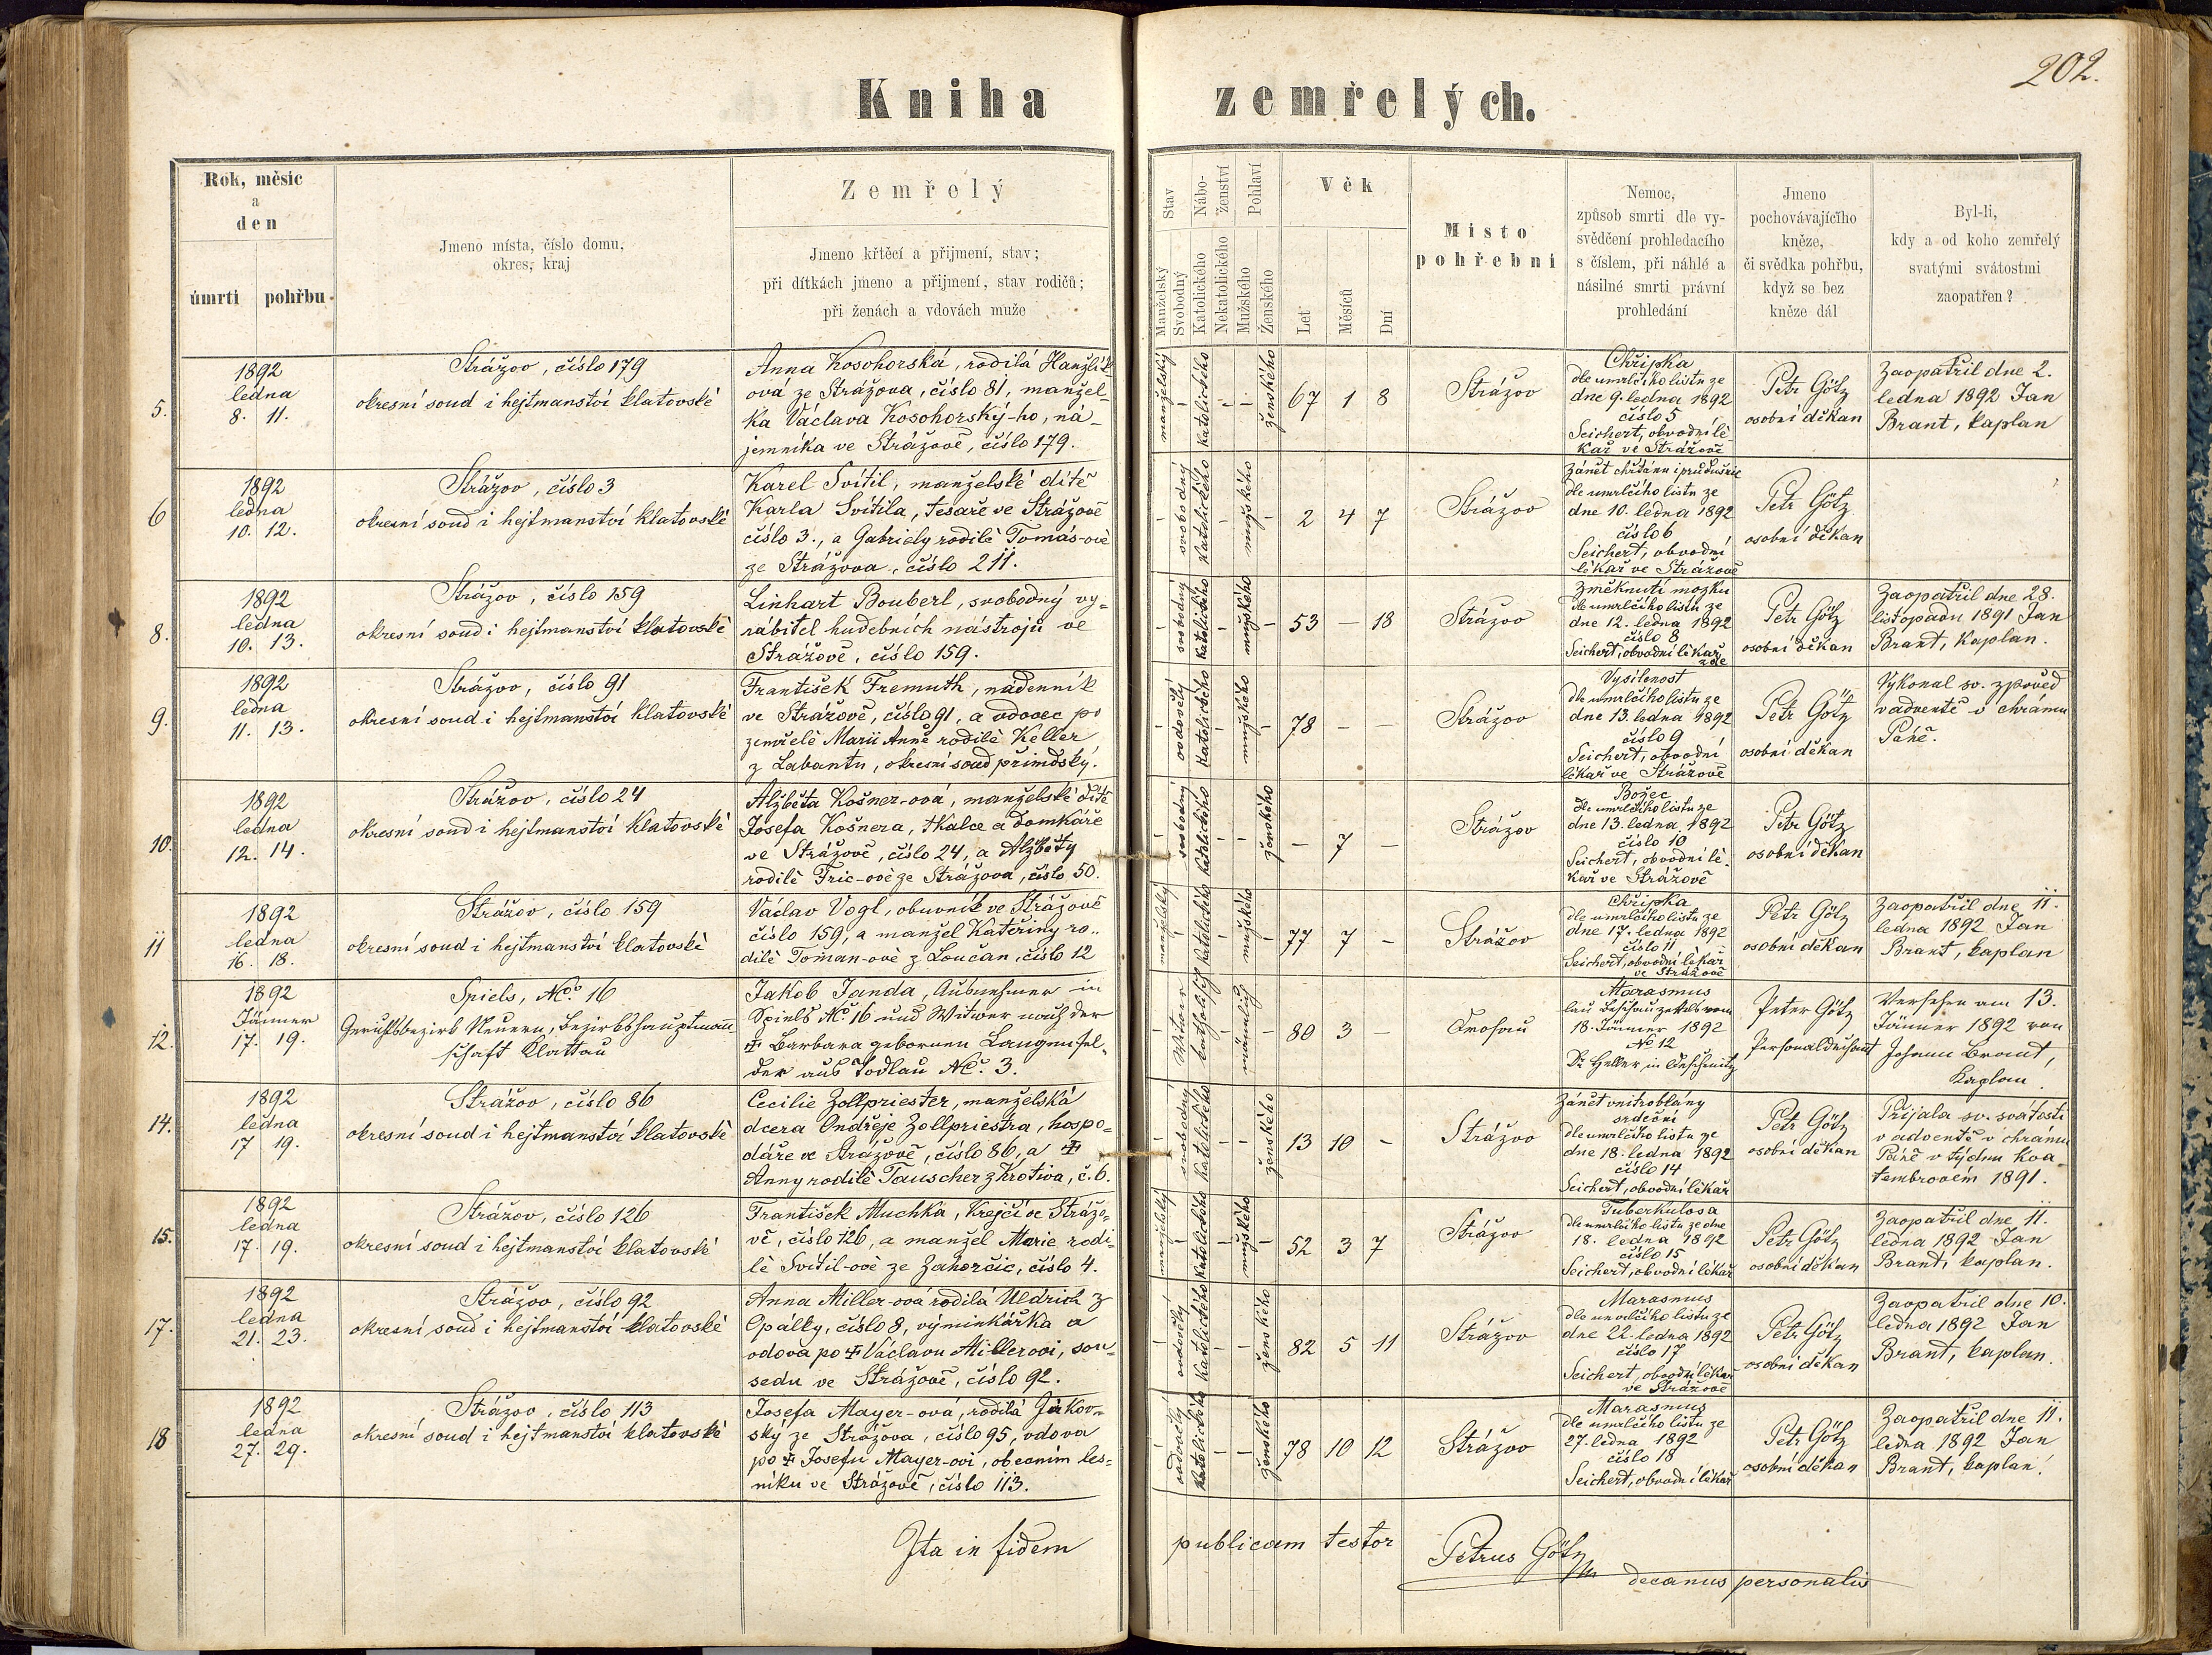 202.
Kniha zemřelých.
Rok, měsíc
a
den
úmrtí
pohřbu
Jmeno místa, číslo domu,
okres, kraj
Zemřelý
Jmeno křtěcí a přijmení, stav;
při dítkách jmeno a přijmení, stav rodičů;
při ženách a vdovách muže
Stav
Manželský
Svobodný
Nábo-
ženství
Katolického
Nekatolického
Pohlaví
Mužského
Ženského
Věk
Let
Měsíců
Dní
Místo
pohřební
Nemoc,
způsob smrti dle vy-
svědčení prohledacího
s číslem, při náhlé a
násilné smrti právní
prohledání
Jmeno
pochovávajícího
kněze,
či svědka pohřbu,
když se bez
kněze dál
Byl-li,
kdy a od koho zemřelý
svatými svátostmi
zaopatřen?
5.
1892
ledna
8. 11.
Strážov, číslo 179
okresní soud i hejtmanství klatovské
Anna Kosohorská, rodilá Hanžlík-
ová ze Strážova, číslo 81, manžel-
ka Václava Kosohorský-ho, ná-
jemníka ve Strážově, číslo 179.
manželský
katolického
ženského
67 1 8
Strážov
Chřipka
dle umrlčího listu ze
dne 9. ledna 1892
číslo 5
Seichert, obvodní lé-
kař ve Strážově
Petr Götz
osobní děkan
Zaopatřil dne 2.
ledna 1892 Jan
Brant, kaplan
6
1892
ledna
10. 12.
Strážov, číslo 3
okresní soud i hejtmanství klatovské
Karel Svítil, manželské dítě
Karla Svítila, tesaře ve Strážově
číslo 3., a Gabriely rodilé Tomás-ové
ze Strážova, číslo 211.
svobodný
katolického
mužského
2 4 7
Strážov
Zánět chřtánu i průdušnic
dle umrlčího listu ze
dne 10. ledna 1892
číslo 6
Seichert, obvodní
lékař ve Strážově
Petr Götz
osobní děkan
8.
1892
ledna
10. 13.
Strážov, číslo 159
okresní soud i hejtmanství klatovské
Linhart Bouberl, svobodný vy-
rábitel hudebních nástrojů ve
Strážově, číslo 159.
svobodný
katolického
mužského
53 — 18
Strážov
Změknutí mozku
dle umrlčího listu ze
dne 12. ledna 1892
číslo 8
Seichert, obvodní lékař
zde
Petr Götz
osobní děkan
Zaopatřil dne 28.
listopadu 1891 Jan
Brant, kaplan.
9.
1892
ledna
11. 13.
Strážov, číslo 91
okresní soud i hejtmanství klatovské
František Fremuth, nádenník
ve Strážově, číslo 91, a vdovec po
zemřelé Marii Anně rodilé Keller
z Labantu, okresní soud přimdský.
vdovělý
katolického
mužského
78 — —
Strážov
Vysílenost
dle umrlčího listu ze
dne 13. ledna 1892
číslo 9
Seichert, obvodní
lékař ve Strážově
Petr Götz
osobní děkan
Vykonal sv. zpověd
v adventě v chrámu
Páně.
10.
1892
ledna
12. 14.
Strážov, číslo 24
okresní soud i hejtmanství klatovské
Alžběta Košner-ová, manželské dítě
Josefa Košnera, tkalce a domkáře
ve Strážově, číslo 24, a Alžběty
rodilé Fric-ové ze Strážova, číslo 50.
svobodný
katolického
ženského
— 7 —
Strážov
Božec
dle umrlčího listu ze
dne 13. ledna 1892
číslo 10
Seichert, obvodní lé-
kař ve Strážově
Petr Götz
osobní děkan
11
1892
ledna
16. 18.
Strážov, číslo 159
okresní soud i hejtmanství klatovské
Václav Vogl, obuvník ve Strážově
číslo 159, a manžel Kateřiny ro-
dilé Toman-ové z Loučan, číslo 12
manželský
katolického
mužského
77 7 -
Strážov
Chřipka
dle umrlčího listu ze
dne 17. ledna 1892
číslo 11
Seichert, obvodní lékař
ve Strážově
Petr Götz
osobní děkan
Zaopatřil dne 11.
ledna 1892 Jan
Brant, kaplan
12.
1892
Jänner
17. 19.
Spiels, No. 16
Gerichtsbezirk Neuern, Bezirkshauptmann
schaft Klattau
Jakob Janda, Ausnehmer in
Spiels No. 16 und Witwer nach der
✠ Barbara gebornen Langenfel-
der aus Todlau No. 3.
Witwer
katholisch
männlich
80 3 -
Drosau
Marasmus
laut Beschauzettels vom
18. Jänner 1892
No 12
Dr. Heller in Deschenitz
Peter Götz
Personaldechant
Versehen am 13.
Jänner 1892 von
Johann Brant,
Kaplan.
14.
1892
ledna
17 19.
Strážov, číslo 86
okresní soud i hejtmanství klatovské
Cecilie Zollpriester, manželská
dcera Ondřeje Zollpriestra, hospo-
dáře ve Strážově, číslo 86, a ✠
Anny rodilé Tauscher z Krotiva, č. 6.
svobodný
katolického
ženského
13 10 -
Strážov
Zánět vnitroblány
srdeční
dle umrlčího listu ze
dne 18. ledna 1892
číslo 14
Seichert, obvodní lékař
Petr Götz
osobní děkan
Přijala sv. svátosti
v adventě v chrámu
Páně v týdnu kva-
tembrovém 1891.
15.
1892
ledna
17. 19.
Strážov, číslo 126
okresní soud i hejtmanství klatovské
František Muchka, krejčí ve Strážo-
vě, číslo 126, a manžel Marie rodi-
lé Svítil-ové ze Zahorčic, číslo 4.
manželský
katolického
mužského
52 3 7
Strážov
Tuberkulosa
dle umrlčího listu ze dne
18. ledna 1892
číslo 15
Seichert, obvodní lékař
Petr Götz
osobní děkan
Zaopatřil dne 11.
ledna 1892 Jan
Brant, kaplan.
17.
1892
ledna
21. 23.
Strážov, číslo 92
okresní soud i hejtmanství klatovské
Anna Miller-ová rodilá Uldrich z
Opálky, číslo 8, výminkářka a
vdova po ✠ Václavu Millerovi, sou-
sedu ve Strážově, číslo 92.
vdovělý
katolického
ženského
82 5 11
Strážov
Marasmus
dle umrlčího listu ze
dne 22. ledna 1892
číslo 17
Seichert, obvodní lékař
ve Strážově
Petr Götz
osobní děkan
Zaopatřil dne 10.
ledna 1892 Jan
Brant, kaplan.
18
1892
ledna
27. 29.
Strážov, číslo 113
okresní soud i hejtmanství klatovské
Josefa Mayer-ová, rodilá Jakov-
ský ze Strážova, číslo 95, vdova
po ✠ Josefu Mayer-ovi, obecním les-
níku ve Strážově, číslo 113.
vdovělý
katolického
ženského
78 10 12
Strážov
Marasmus
dle umrlčího listu ze
27. ledna 1892
číslo 18
Seichert, obvodní lékař
Petr Götz
osobní děkan
Zaopatřil dne 11.
ledna 1892 Jan
Brant, kaplan.
Ita in fidem publicam testor
Petrus Götz
decanus personalis